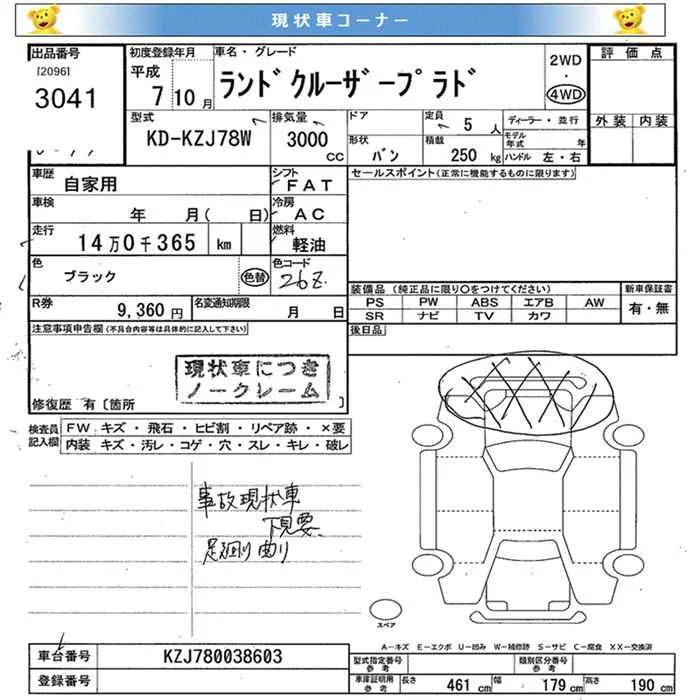 現状車コーナー
出品番号
[2096]
3041
初度登録年月
平成
7 10月
車名・グレード
ランドクルーザープラド
2WD
・
4WD
評価点
外装 内装
型式
KD-KZJ78W
排気量
3000
CC
ドア
形状
バン
定員
5人
積載
250 kg
ディーラー・並行
モデル年式 年
ハンドル 左・右
車歴
自家用
シフト
FAT
車検
年 月( 日)
冷房
AC
走行
14万0千365 km
燃料
軽油
色
ブラック
色替
色コード
26Z
R券
9,360円
名変通知期限
月 日
セールスポイント(正常に機能するものに限ります)
装備品 (純正品に限り○をつけてください)
PS PW ABS エアB AW
SR ナビ TV カワ
新車保証書
有・無
後日品
注意事項申告欄(不具合内容等は具体的に記入して下さい)
現状車につき
ノークレーム
修復歴 有〔箇所 〕
検査員記入欄
FW キズ・飛石・ヒビ割・リペア跡・×要
内装 キズ・汚レ・コゲ・穴・スレ・キレ・破レ
事故現状車
下見要
足廻り曲り
スペア
A-キズ E-エクボ U-凹み W-補修跡 S-サビ C-腐食 XX-交換済
車台番号
KZJ780038603
登録番号
型式指定番号
参考
類別区分番号
参考
車庫証明用
参考
長さ 461 cm 幅 179 cm 高さ 190 cm